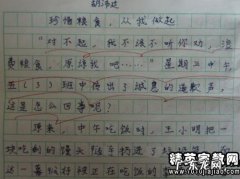 胡沛廷
珍惜粮食，从我做起
“对不起，我不该不听你劝，浪
费粮食，原谅我吧……”星期三中午，
五（3）班中传出了诚恳的道歉声，
这是怎么回事呢？
原来，中午吃饭时，王小明把一
块吃剩的馒头随手扔进了垃圾
这一幕 被正在吃饭的
精英宠教网
rotojiajiao.com